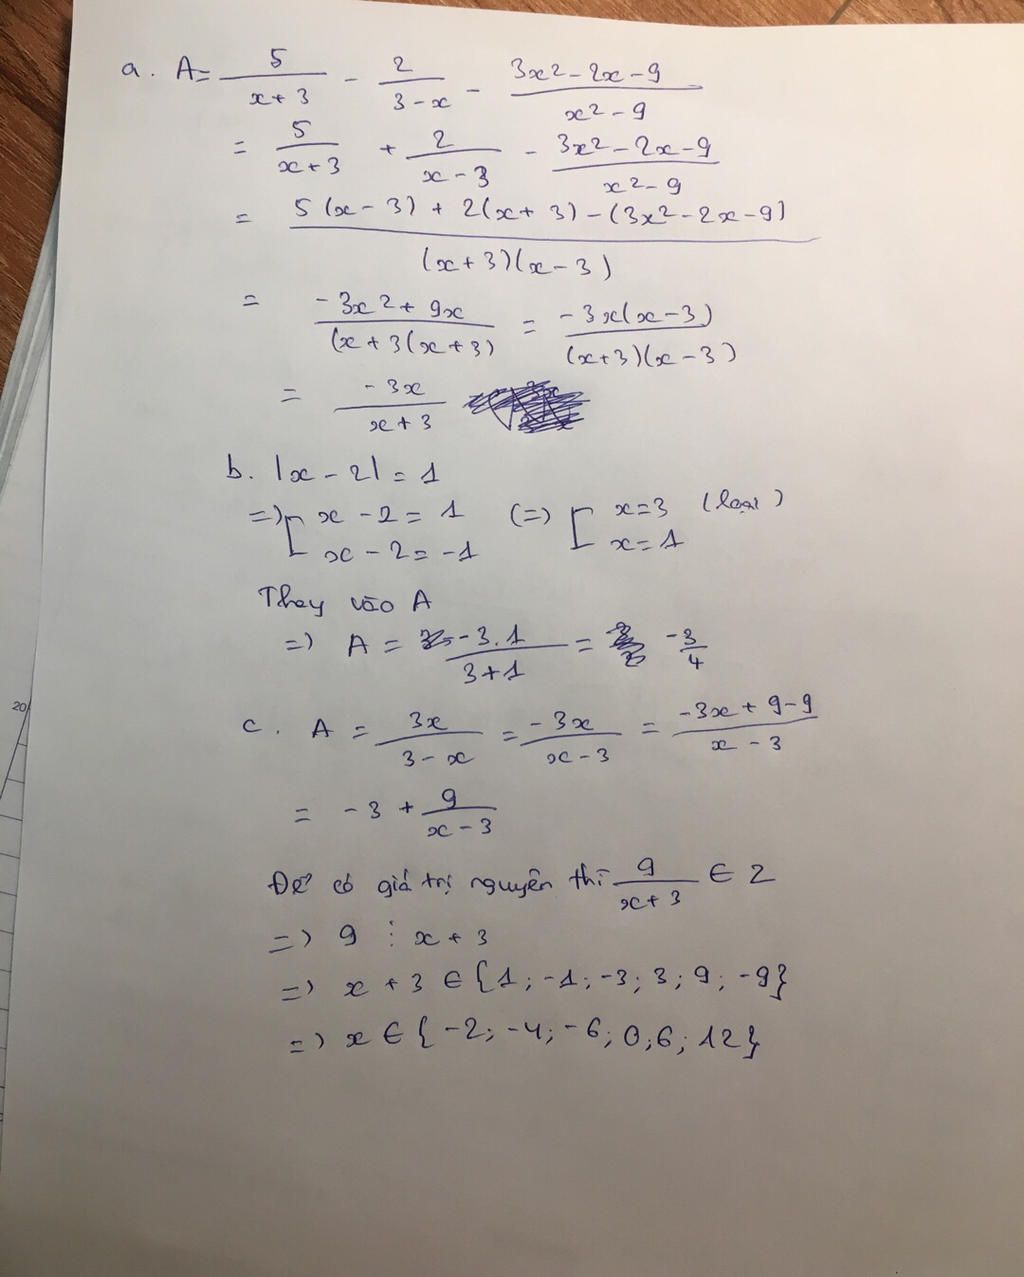 a. A = 5/(x+3) - 2/(3-x) - (3x2-2x-9)/(x2-9)
= 5/(x+3) + 2/(x-3) - (3x2-2x-9)/(x2-9)
= (5(x-3) + 2(x+3) - (3x2-2x-9))/((x+3)(x-3))
= (-3x2+9x)/((x+3(x+3)) = (-3x(x-3))/((x+3)(x-3))
= (-3x)/(x+3)
b. |x-2| = 1
=> [ x-2 = 1 (=> [ x=3 (loại)
x-2 = -1 x=1
Thay vào A
=> A = (-3.1)/(3+1) = -3/4
c. A = 3x/(3-x) = (-3x)/(x-3) = (-3x+9-9)/(x-3)
= -3 + 9/(x-3)
Để có giá trị nguyên thì 9/(x+3) ∈ Z
=> 9 ⋮ x+3
=> x+3 ∈ {1; -1; -3; 3; 9; -9}
=> x ∈ {-2; -4; -6; 0; 6; 12}
20